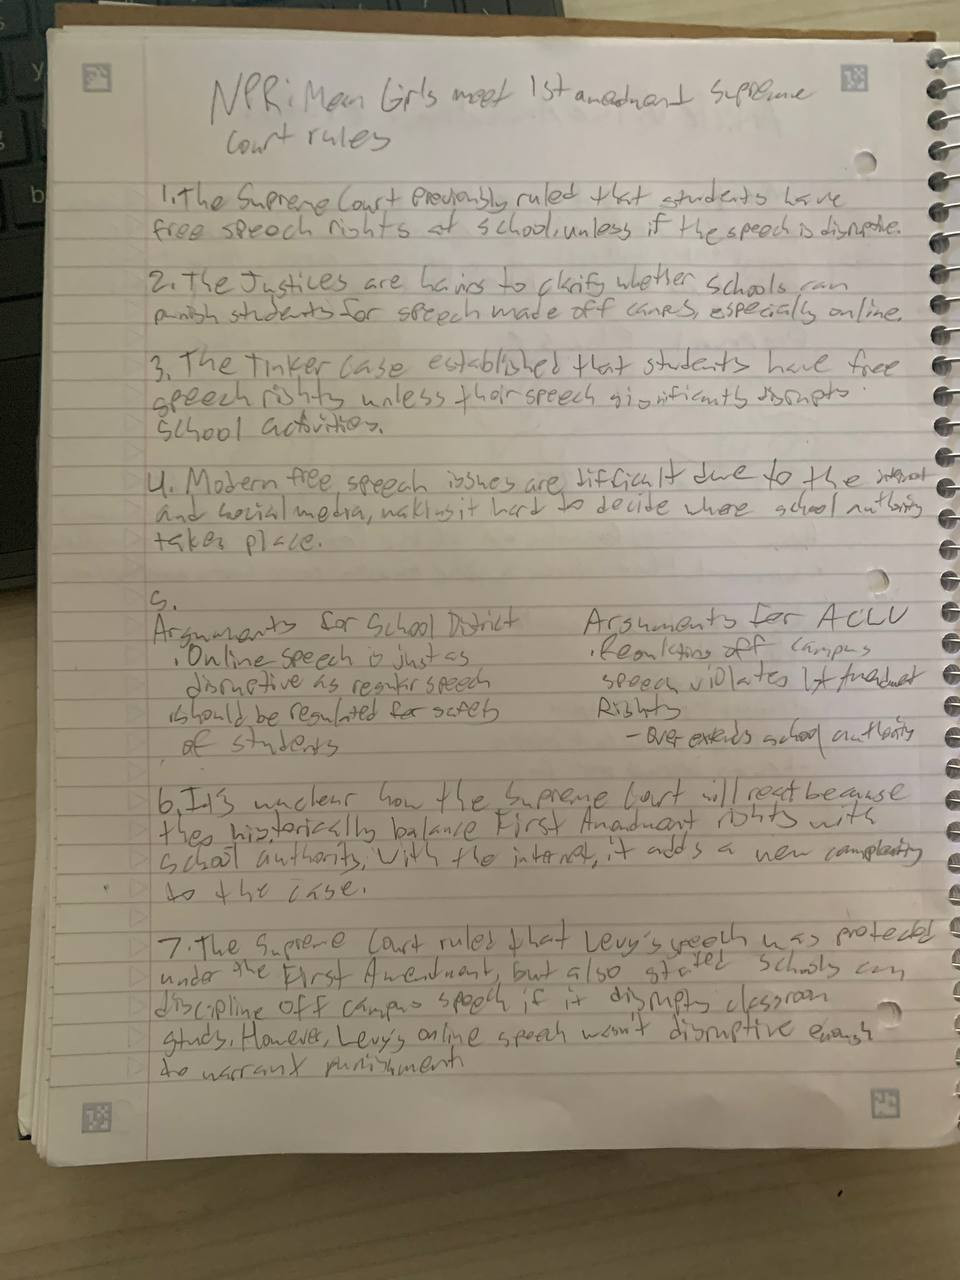 NPR: Mean Girls meet 1st amendment Supreme
Court rules
1. The Supreme Court previously ruled that students have
free speech rights at school, unless if the speech is disruptive.
2. The Justices are having to clarify whether schools can
punish students for speech made off campus, especially online.
3. The Tinker Case established that students have free
speech rights unless their speech significantly disrupts
school activities.
4. Modern free speech issues are difficult due to the internet
and social media, making it hard to decide where school authority
takes place.
5.
Arguments for School District
. Online speech is just as
disruptive as regular speech
. should be regulated for safety
of students
Arguments for ACLU
. Regulating off campus
speech violates 1st Amendment
Rights
- Over extends school authority
6. It's unclear how the Supreme Court will react because
they historically balance First Amendment rights with
school authority. With the internet, it adds a new complexity
to the case.
7. The Supreme Court ruled that Levy's speech was protected
under the First Amendment, but also stated schools can
discipline off campus speech if it disrupts classroom
study. However, Levy's online speech wasn't disruptive enough
to warrant punishment